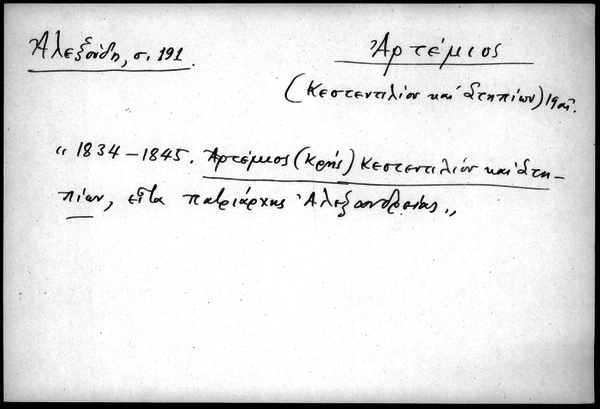 Ἀλεξούδη, σ. 191.
Ἀρτέμιος
(Κεστεντιλίου καὶ Στηπίων) 19 αἰ.
« 1834 – 1845. Ἀρτέμιος (Κρής) Κεστεντιλίου καὶ Στη-
πίων, εἶτα πατριάρχης Ἀλεξανδρείας »